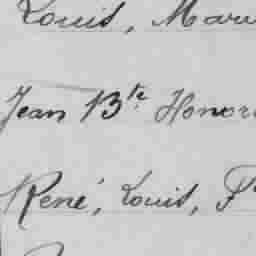 Louis, Mari
Jean Bte Honor
René, Louis, F